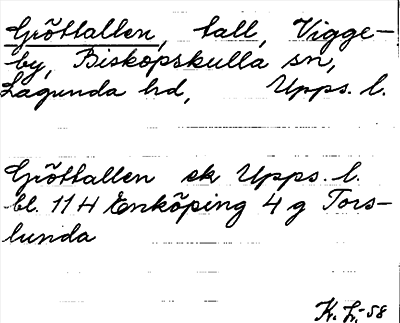 Gröttallen, tall, Vigge-
by, Biskopskulla sn,
Lagunda hd, Upps. l.
Gröttallen ek Upps. l.
bl. 11 H Enköping 4 g Tors-
lunda
K. L. -58